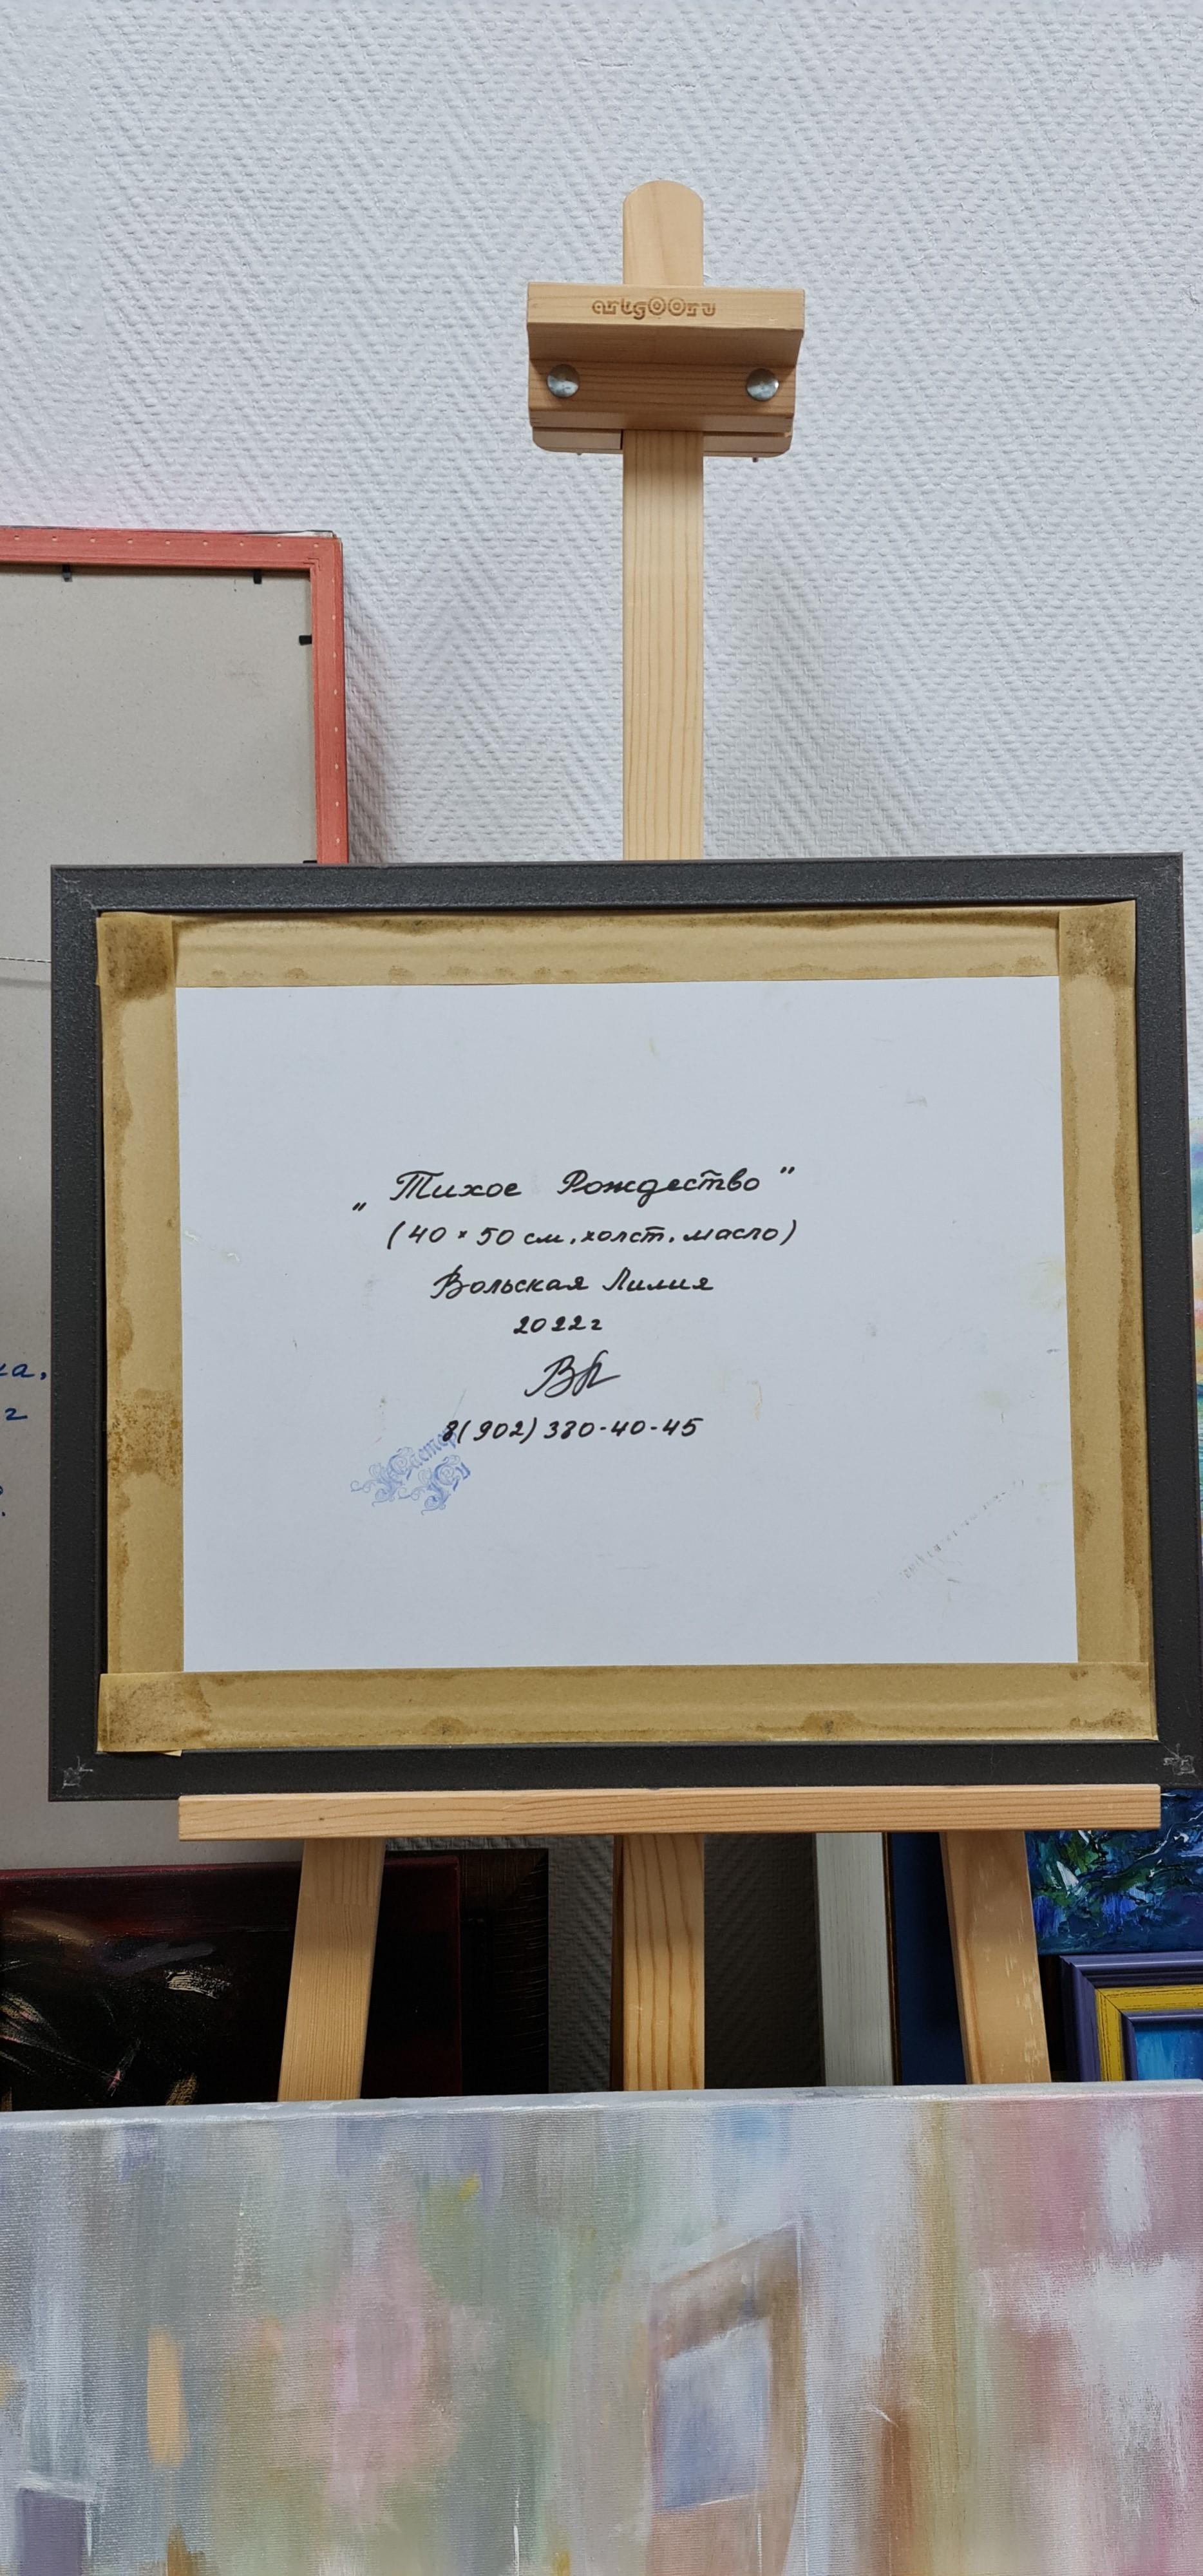 artgOOru
„Тихое Рождество"
(40 × 50 см, холст, масло)
Вольская Лилия
2022г
ВЛ
8(902) 380-40-45
Мастер